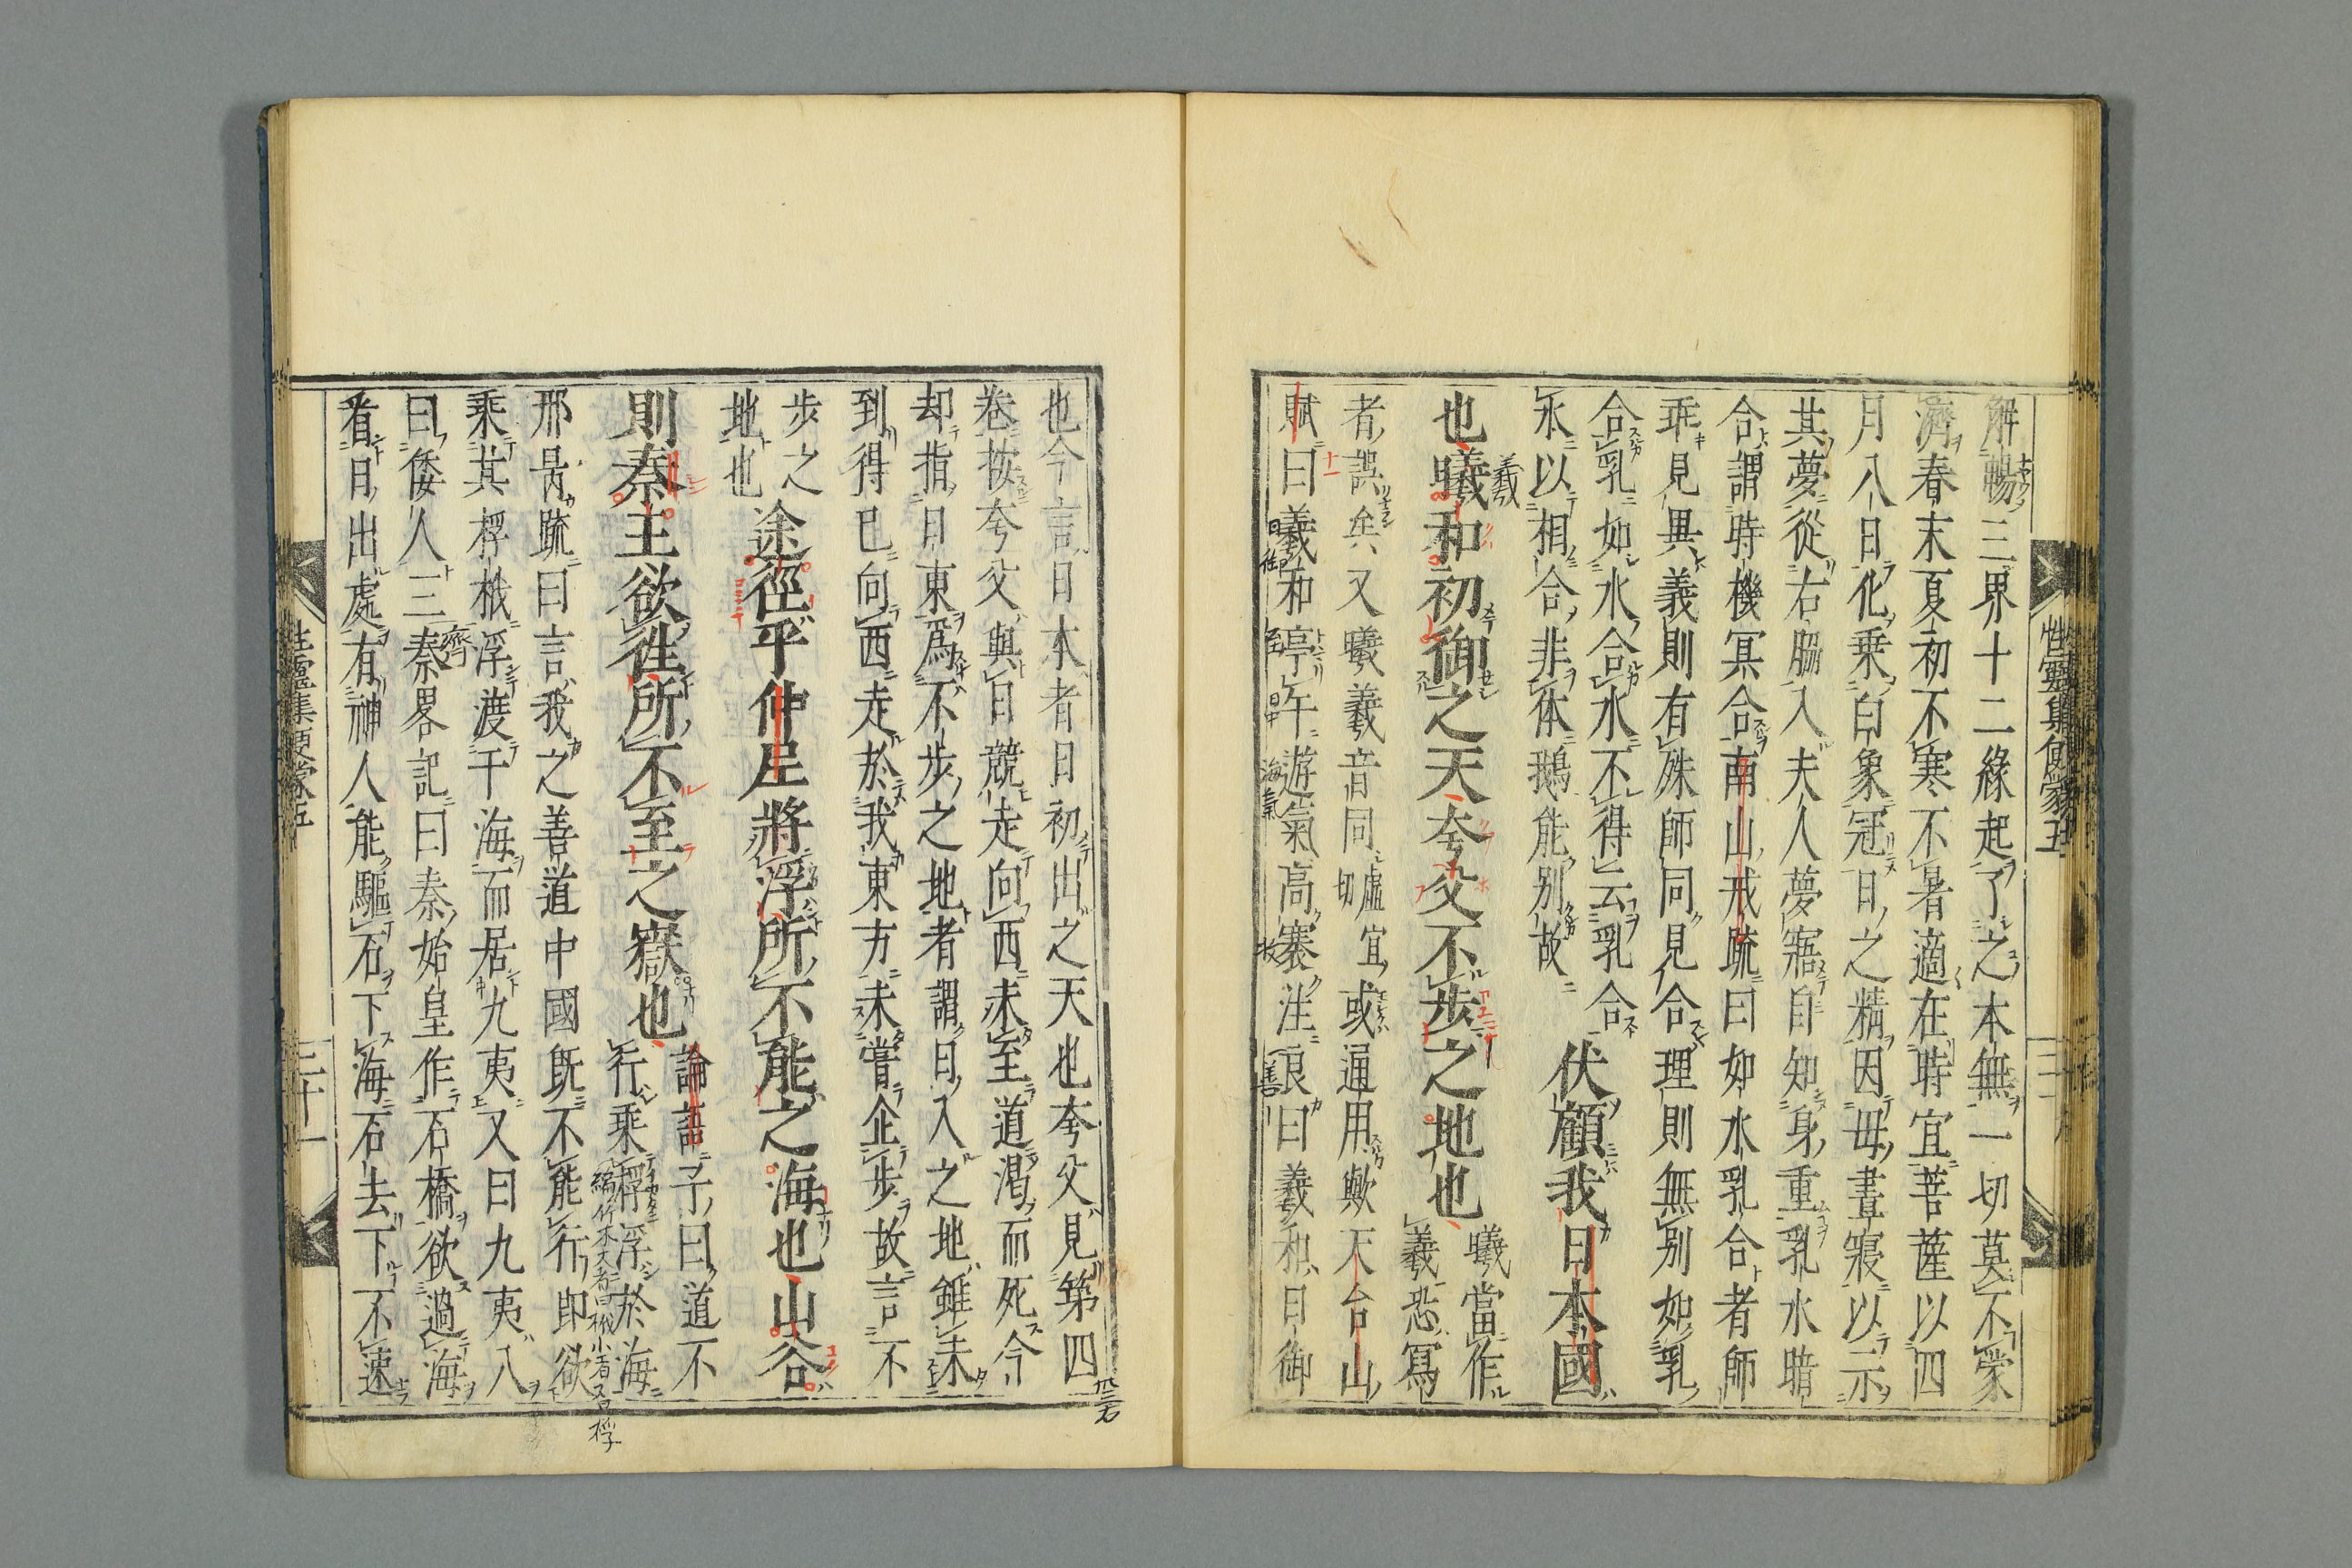 解暢三界十二緣起了之本無一切莫不蒙
濟春末夏初不寒不暑適在時宜菩薩以四
月八日化乗白象冠日之精因毋晝寢以示
其夢從右脇入夫人夢寤自知身重乳水暗
合謂時機冥合南山戒疏曰如水乳合者師
乖見異義則有殊師同見合理則無別如乳
合乳如水合水不得云乳合
水以相合非体鵝能別故
伏顧我日本國
也曦和初御之天夸父不步之地也
義
曦當作
羲恐寫
者誤矣又曦羲音同虛宜切或通用歟天台山
賦曰羲和亭午遊氣高褰注良曰羲和日御
日御
至
日中
海氣
收
善
性靈集便蒙五
也今言日本者日初出之天也夸父見第四
卷按夸父與日競走向西未至道渴而死今
却指日東爲不步之地者謂日入之地雖未
到得已向西走於我東方未嘗企步故言不
步之
地也
途徑乎仲尼將浮所不能之海也山谷
則秦主欲徃所不至之嶽也
論語子曰道不
行乘桴浮於海
編竹木大者曰栰小者又曰桴
邢昺疏曰言我之善道中國旣不能行即欲
乘其桴栰浮渡于海而居九夷又曰九夷八
曰倭人三秦畧記曰秦始皇作石橋欲過海
齊
看日出處有神人能驅石下海石去不速
性靈集便蒙五
三十一